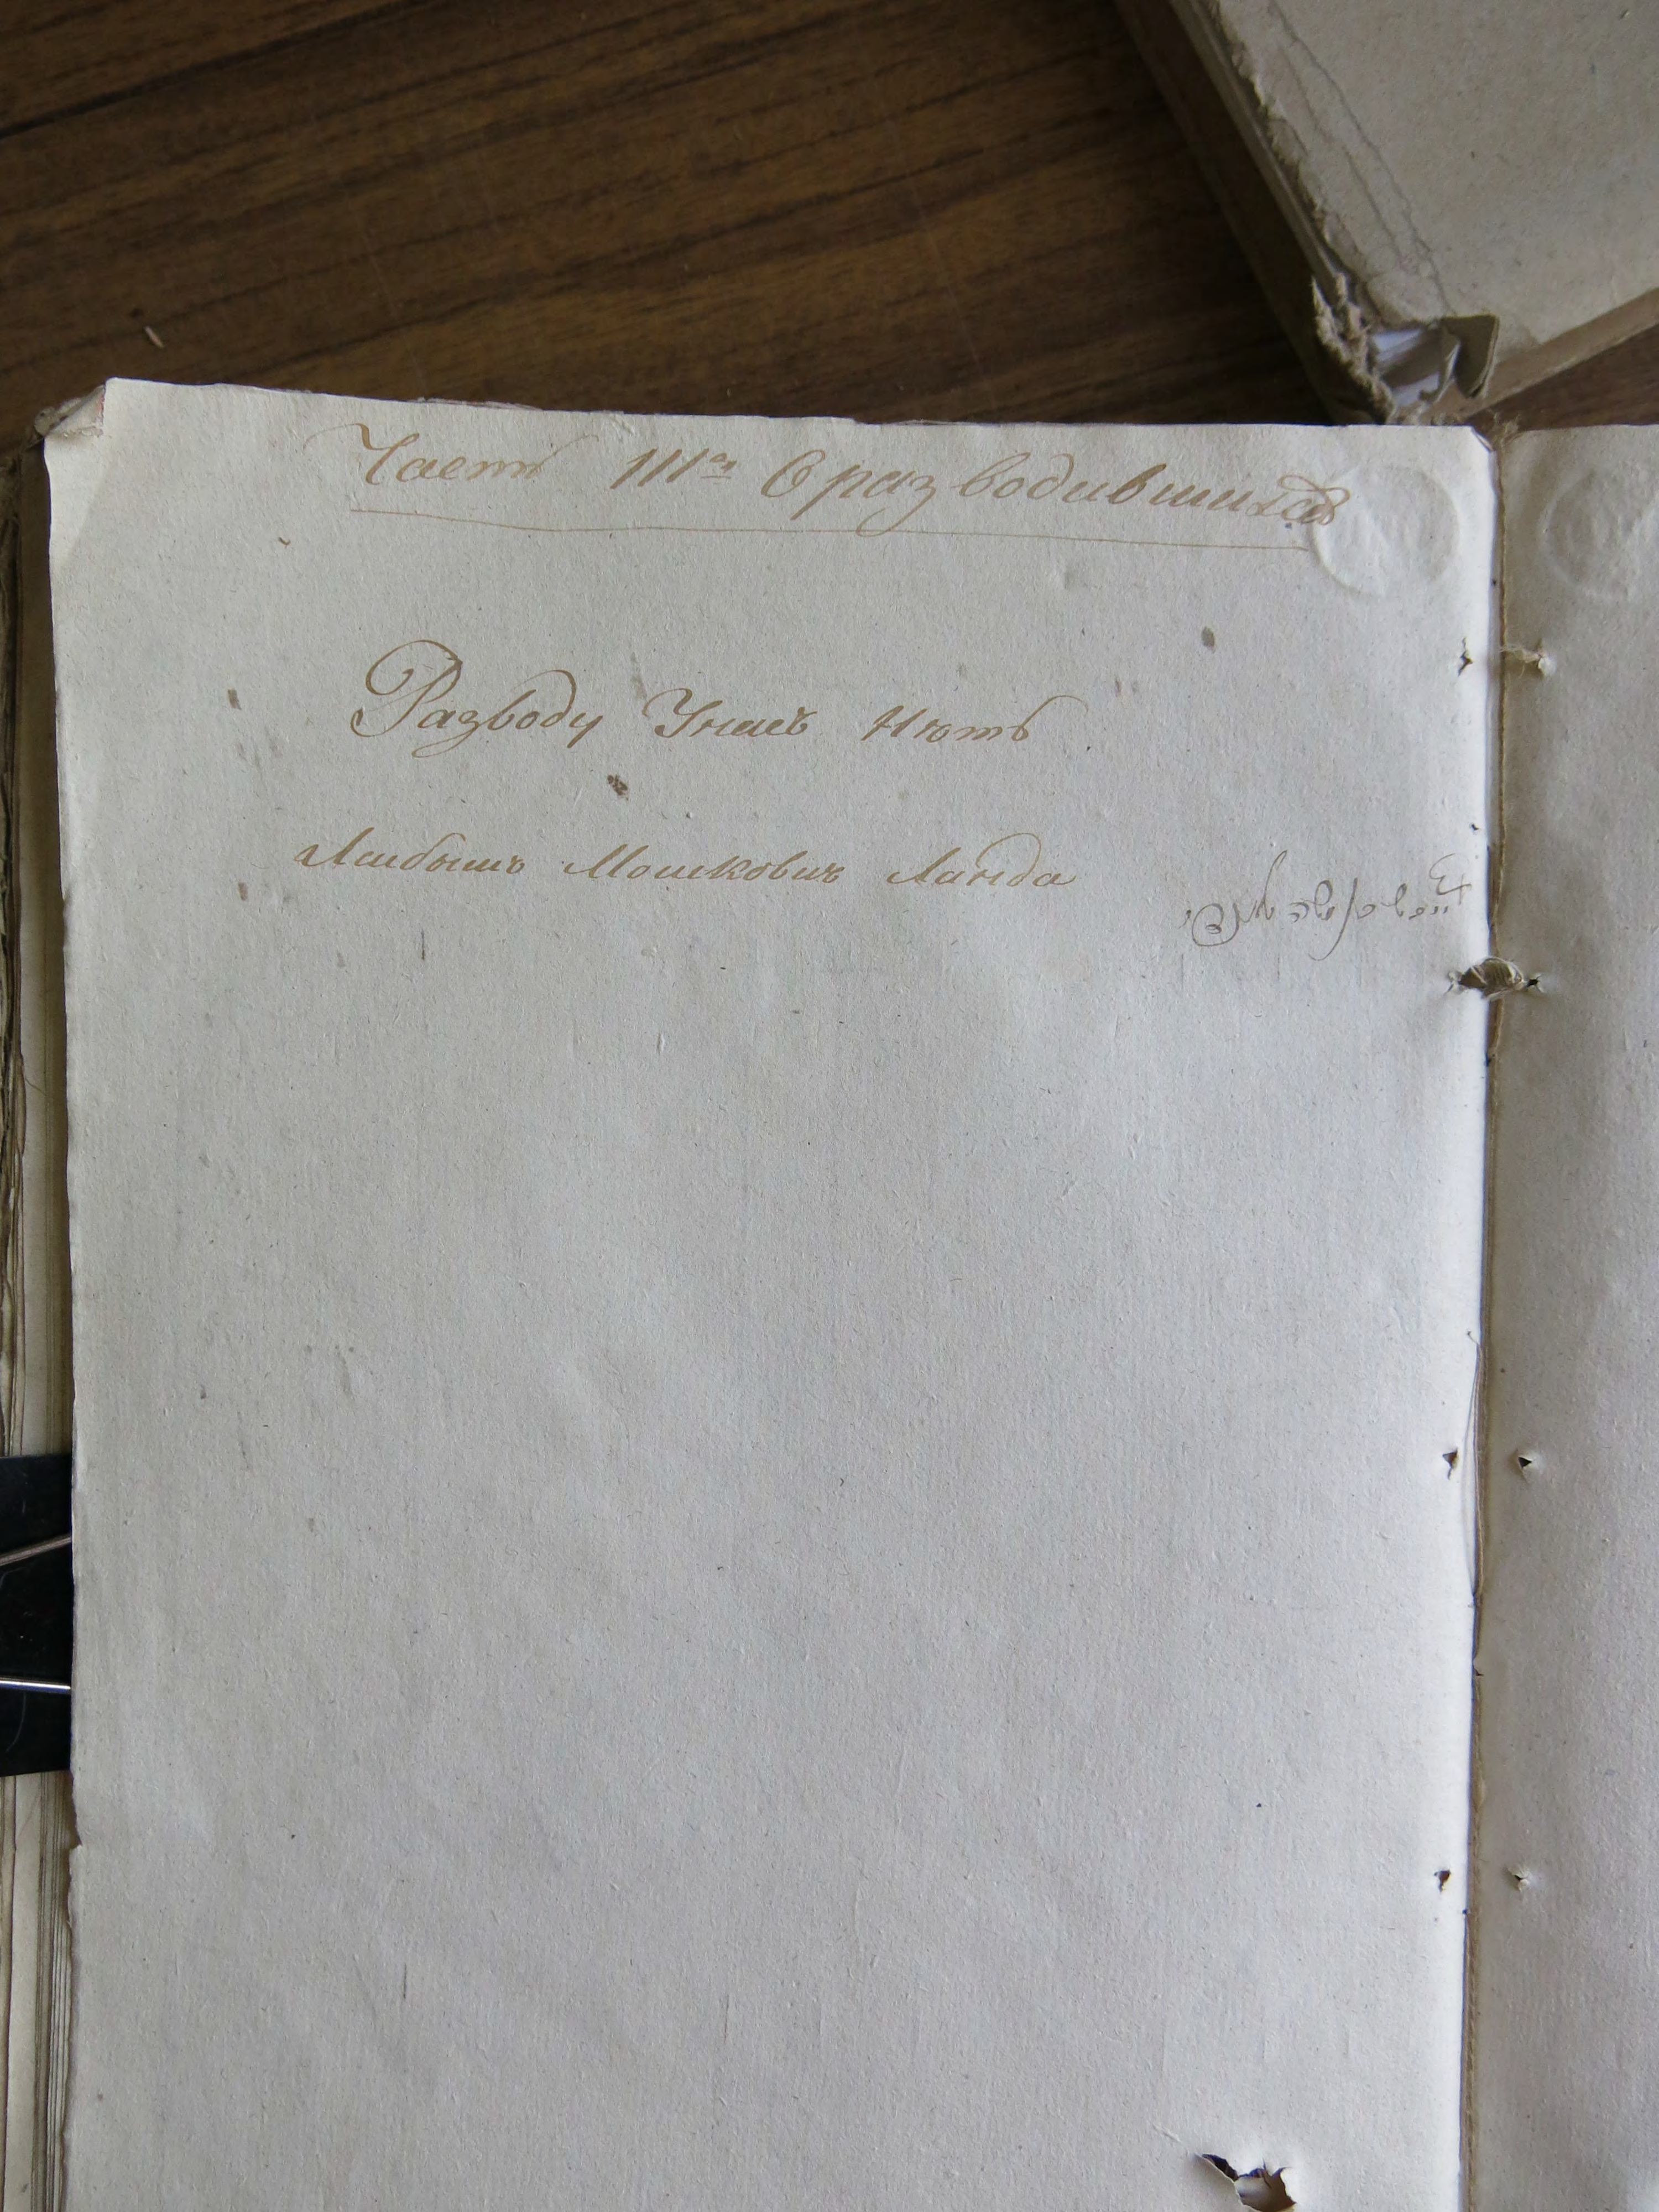 Часть III<sup>я</sup> О разводившихся
Разводу Унасъ Нѣтъ
Лейбышъ Мошковичъ Ланда